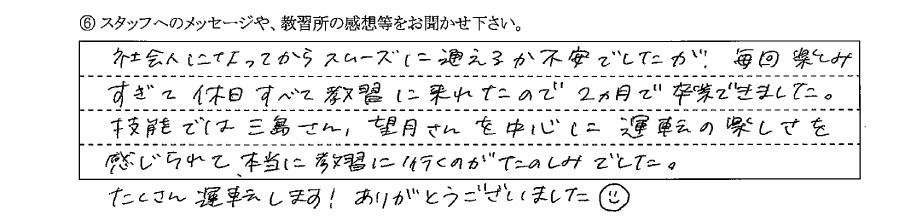 ⑥ スタッフへのメッセージや、教習所の感想等をお聞かせ下さい。
社会人になってからスムーズに通えるか不安でしたが、毎回楽しみ
すぎて休日すべて教習に来れたので2ヵ月で卒業できました。
技能では三島さん、望月さんを中心に運転の楽しさを
感じられて、本当に教習に行くのがたのしみでした。
たくさん運転します！ありがとうございました☺